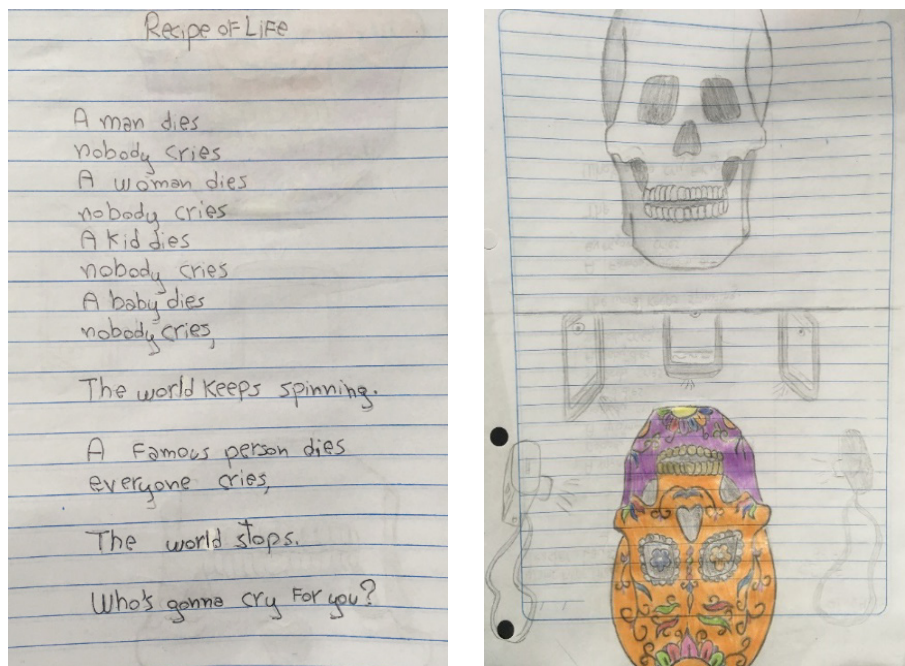 Recipe of Life
A man dies
nobody cries
A woman dies
nobody cries
A kid dies
nobody cries
A baby dies
nobody cries,
The world keeps spinning.
A Famous person dies
everyone cries,
The world stops.
Who's gonna cry for you?